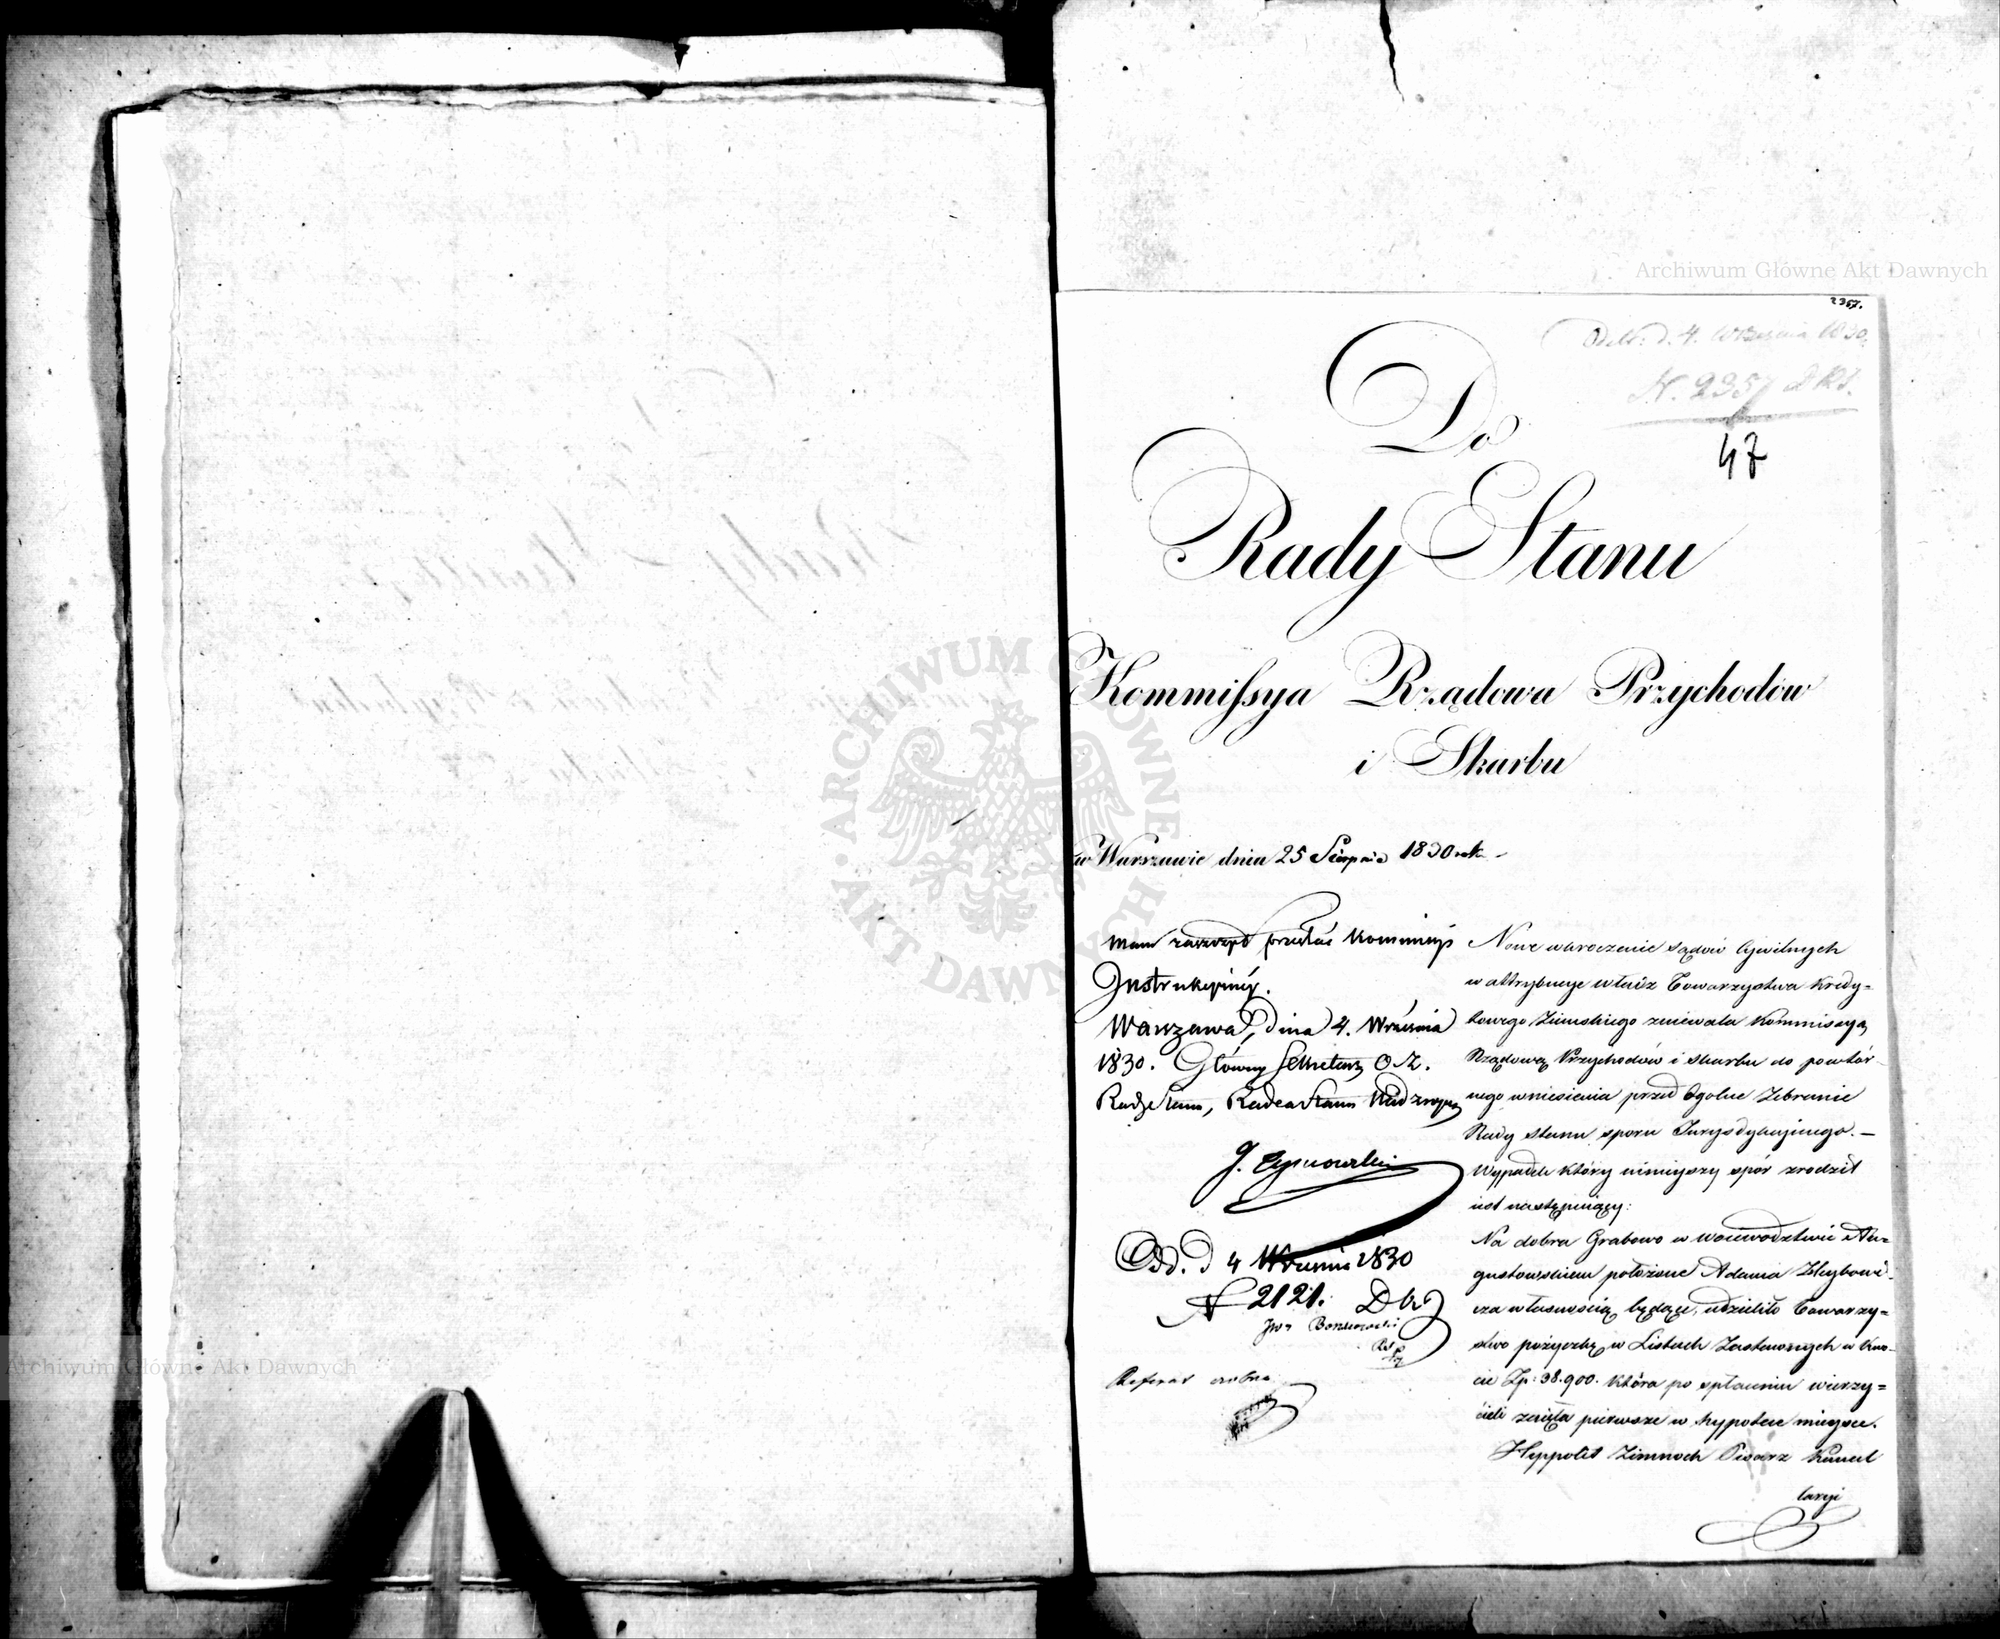 Archiwum Główne Akt Dawnych
2357.
d. 4. Września 1830
N. 2357
47
Do
Rady Stanu
Kommissya Rządowa Przychodów
i Skarbu
w Warszawie dnia 25 Sierpnia 1830 roku
Mam zaszczyt przesłać Kommissyi
Instrukcyinéy.
Warszawa, dnia 4. Września
1830. Główny Sekretarz O. Z.
Rady Stanu, Radca Stanu Nadzwyczay
J. Tymowski
Odd. d 4 Wrzesnia 1830
N 2121.
Referat
Nowe wkroczenie sądów Cywilnych
w attrybucye władz Towarzystwa Kredy=
towego Ziemskiego zniewala Kommissyą
Rządową Przychodów i Skarbu do powtór
nego wniesienia przed Ogolne Zebranie
Rady Stanu sporu Jurysdykcyinego. —
Wypadek który ninieyszy spór zrodził
iest następuiący:
Na dobra Grabowo w Woiewodztwie Au=
gustowskiem położone Adama
cza własnością będące, udzieliło Towarzy=
stwo pożyczkę w Listach Zastawnych w kwo
cie Zp: 38.900. która po spłaceniu wierzy=
cieli zaięła pierwsze w hypotece mieysce.
Hippolit Zimnoch Pisarz Kancel
laryi
ARCHIWUM GŁÓWNE AKT DAWNYCH
Archiwum Główne Akt Dawnych